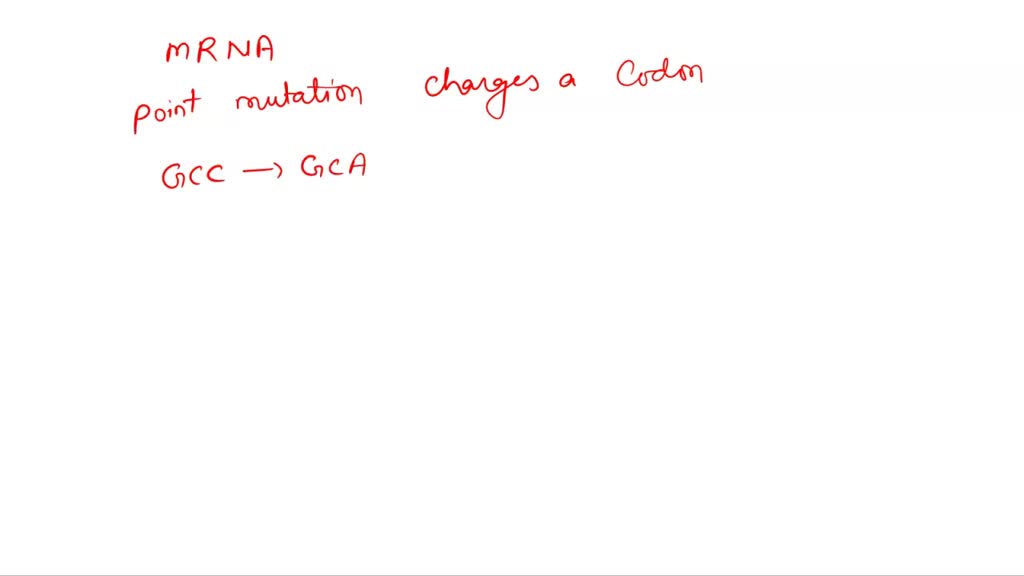 mRNA
point mutation charges a Codon
GCC → GCA